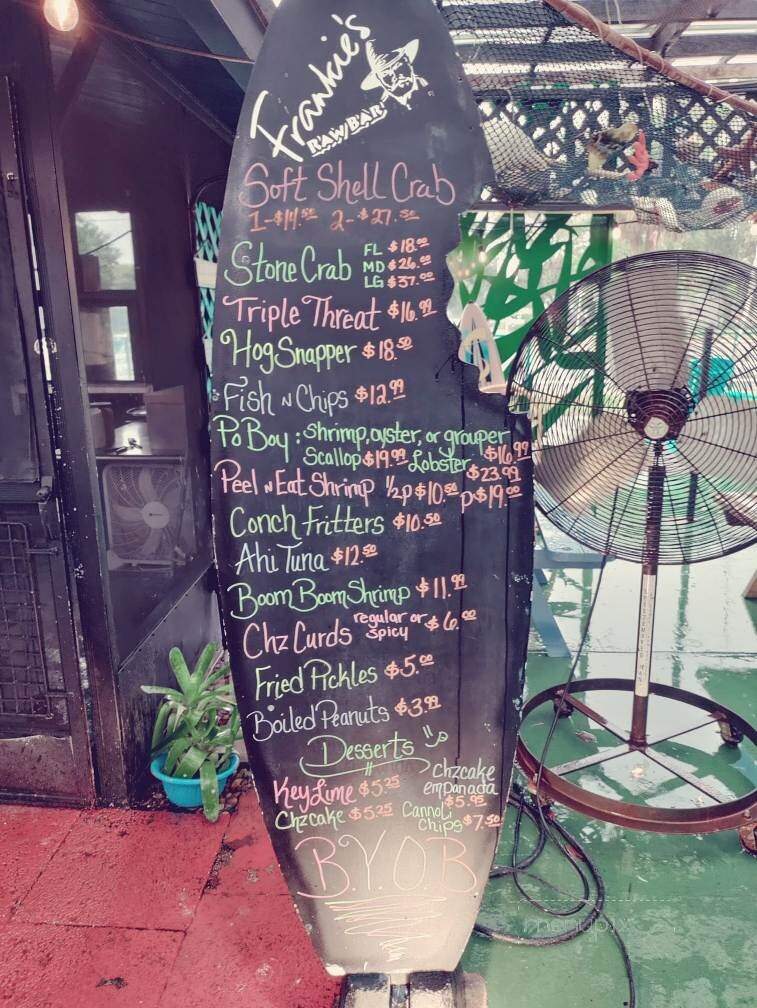 Frankie's
RAW BAR
Soft Shell Crab
1-$14.50 2-$27.50
Stone Crab FL $18.00
MD $26.00
LG $37.00
Triple Threat $16.99
Hog Snapper $18.50
Fish N Chips $12.99
Po Boy: shrimp, oyster, or grouper $16.99
Scallop $19.99 Lobster $23.99
Peel N Eat Shrimp 1/2p $10.50 p $19.00
Conch Fritters $10.50
Ahi Tuna $12.50
Boom Boom Shrimp $11.99
Chz Curds regular or spicy $6.00
Fried Pickles $5.00
Boiled Peanuts $3.99
Desserts
Key Lime $5.25
Chzcake empanada $5.95
Chzcake $5.25
Cannoli Chips $7.50
B.Y.O.B
menupix